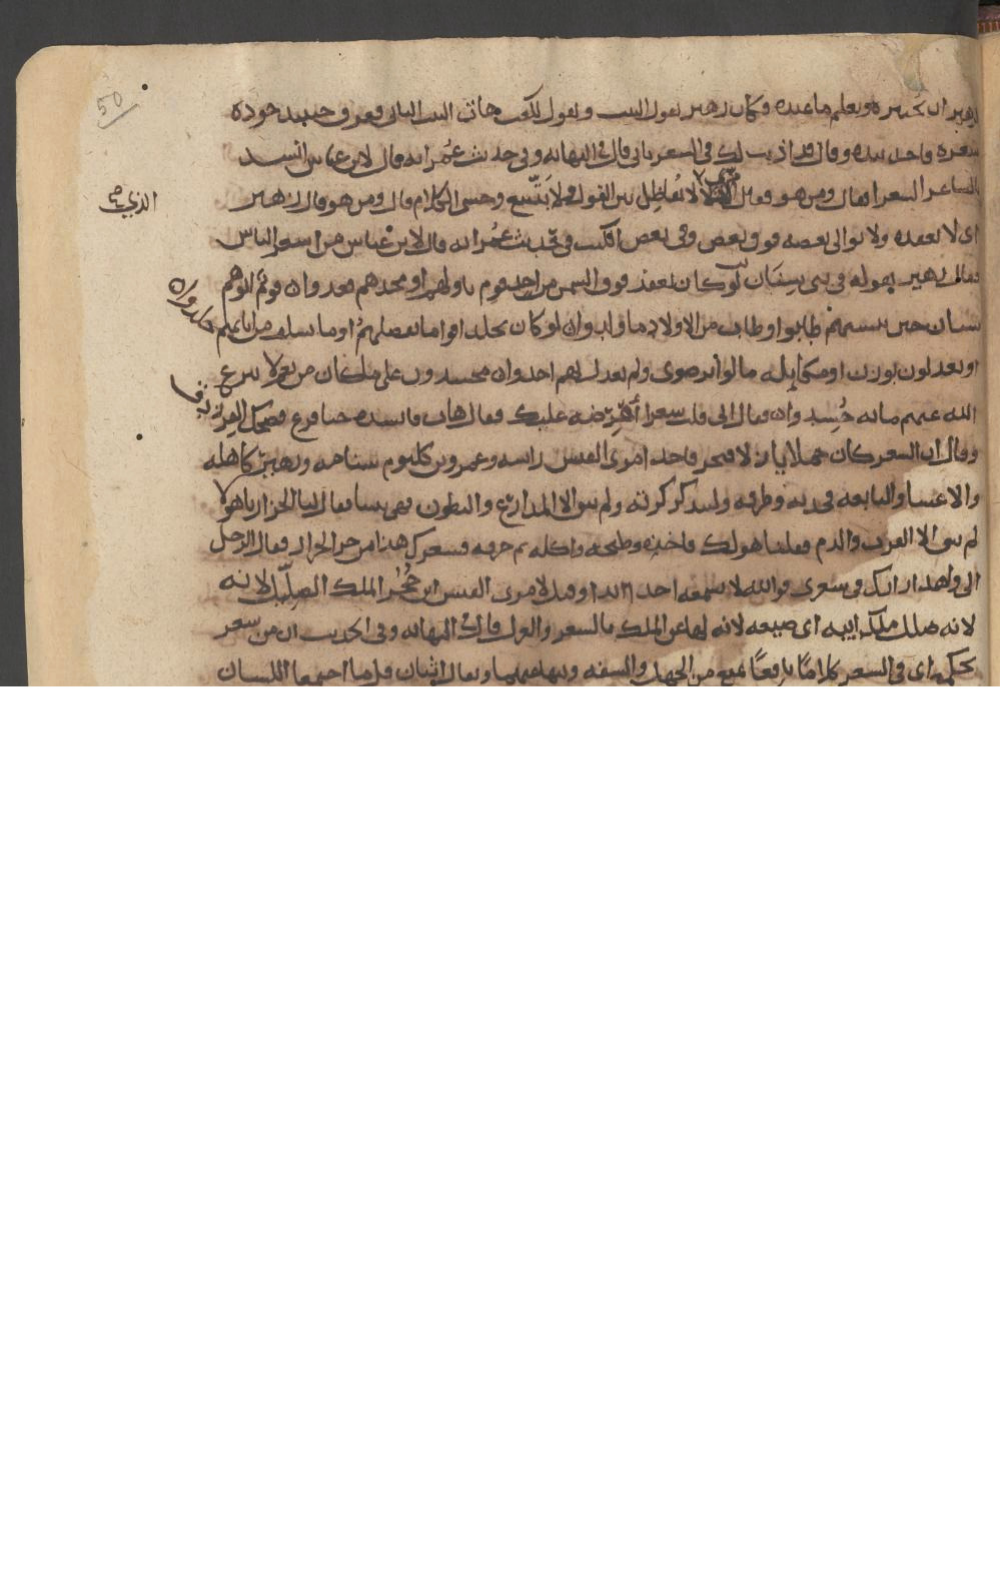 زهير ان يختبره ويعلم ما عنده وكان زهير يقول البيت ويقول لكعب هات البيت الثاني فعرف حينئذ جودة
شعره فاخذ بيده وقال قد اذنت لك في الشعر يا بني قال في النهاية وفي حديث عمر انه قال لابن عباس انشد
لشاعر الشعراء قال ومن هو فقال الذي لا يعاظل بين القول ولا يتتبع وحشي الكلام قال ومن هو قال زهير
الذي صح
اي لا يعقده ولا يوالي بعضه فوق بعض وفي بعض الكتب في حديث عمر انه قال لابن عباس من اشعر الناس
فقال زهير بقوله في بني سنان لو كان يقعد فوق الشمس من احد قوم باولهم او مجدهم قعدوا ه قوم ابوهم
سنان حين تنسبهم طابوا وطاب من الاولاد ما ولدوا ه لو كان يخلد اقواما بفضلهم او ما تسلف من ايامهم خلدوا ه
او يعدلون بوزن او مكايلة مالوا برضوى ولم يعدل بهم احد ه محسدون على ما كان من نعم لا ينزع
الله عنهم ما به حسدوا ه فقال اني قلت شعرا اعرضه عليك فقال هات فانشده حتى فرغ فضحك الفرزدق
وقال ان الشعر كان جملا بازلا فنحر فاخذ امرؤ القيس راسه وعمرو بن كلثوم سنامه وزهير كاهله
والاعشى والنابغة فخذيه وطرفه ولبيد كركرته ولم يبق الا المذارع والبطون فهي بيننا فقال لنا الجزار يا هؤلاء
لم يبق الا الفرث والدم فقلنا هو لك فاخذه وطبخه واكله ثم خريه فشعرك هذا من خراء الجزار فقال الرجل
الى والله ان انشدك في شعري فوالله لا سمعه احد ابدا وقيل لامرئ القيس ابن حجر الملك الضليل لانه
لانه ضلل ملك ابيه اي ضيعه لانه لها عن الملك بالشعر والغزل قال في النهاية وفي الحديث ان من شعر
لحكمه اي في الشعر كلاما نافعا يمنع من الجهل والسفه وينهى عنهما ويقال اثنان قل ما اجتمعا اللسان